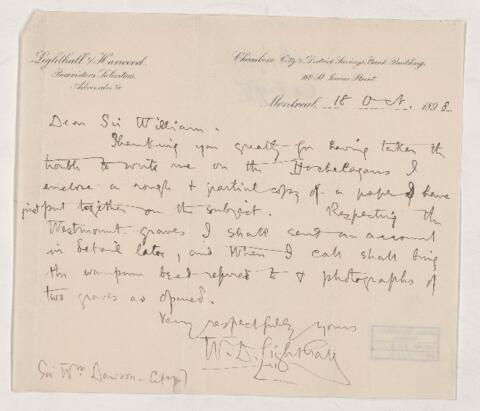 Lighthall & Harwood,
Barristers, Solicitors,
Advocates &c
Chambers, City & District Savings Bank Building,
180 St James Street.
Montreal, 18 Oct. 1898.
Dear Sir William.
Thanking you greatly for having taken the
trouble to write me on the Hochelagans I
enclose a rough & partial copy of a paper I have
just put together on the subject. Respecting the
Westmount graves I shall send an account
in detail later, and when I call shall bring
the wampum bead referred to & photographs of
two graves as opened.
Very respectfully yours
W. D. Lighthall
Sir Wm Dawson. City